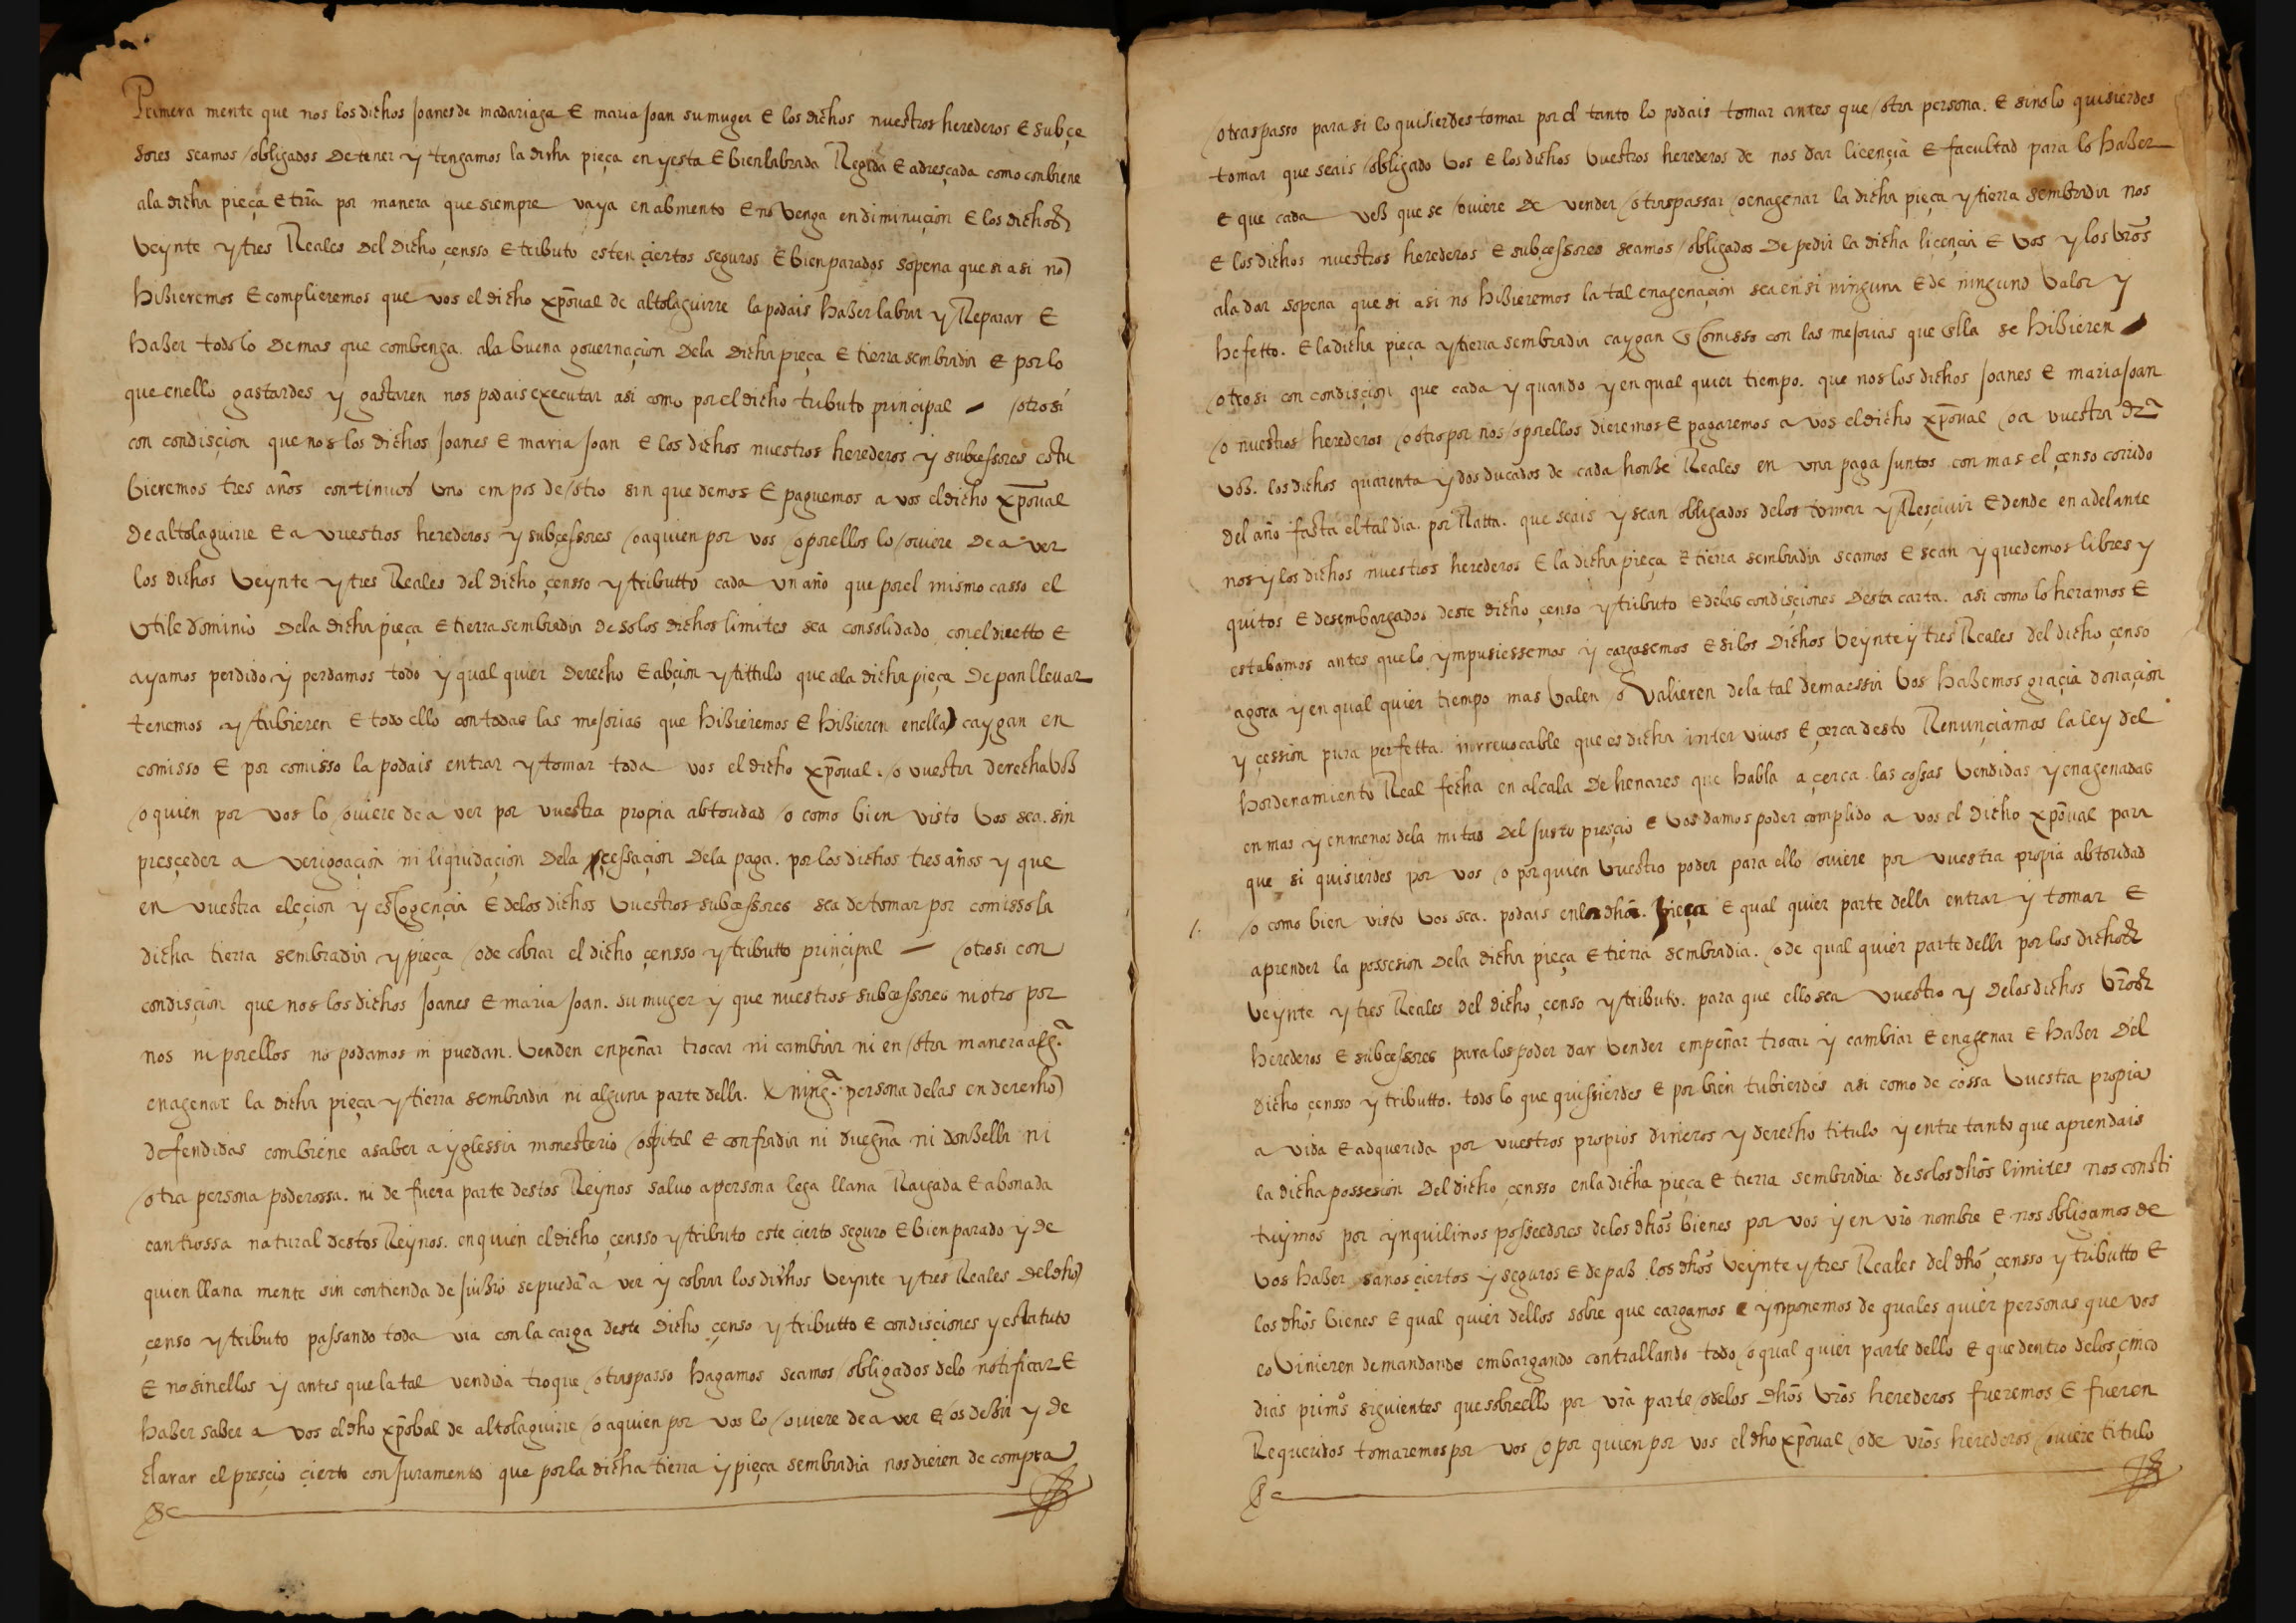 Primera mente que nos los dichos Joanes de madariaga E maria Joan su muger E los dichos nuestros herederos E subçe
sores seamos /obligados De tener y tengamos la dicha pieça en yesta E bien labrada Regida E adresçada como conbiene
ala dicha pieça E trr̃a por manera que siempre vaya en abmento E no venga en diminuçion E los dichos
Veynte y tres Reales Del dicho çensso E tributo esten çiertos seguros E bien parados so pena que si a si no
hiZieremos E complieremos que vos el dicho xpõual de altolaguirre la podais haZer labrar y Reparar E
haZer todo lo Demas que combenga ala buena governaçion Dela dicha pieça E tierra sembradia E por lo
que en ello gastardes y gastaren nos podais executar asi como por el dicho tributo principal — /otro si
con condisçion que nos los dichos Joanes E maria Joan E los dichos nuestros herederos y subçessores estu
bieremos tres años continuos uno em pos de /otro sin que demos E paguemos a vos el dicho xpõual
De altolaguirre E a vuestros herederos y subçessores /o a quien por vos /o por ellos lo /oviere De a ver
los dichos Veynte y tres Reales del dicho çensso y tributto cada un año que por el mismo casso el
Utile dominio Dela dicha pieça E tierra sembradia De so los dichos limites sea consolidado con el diretto E
ayamos perdido y perdamos todo y qual quier Derecho E abçion y tittulo que ala dicha pieça De pan llevar
tenemos y tubieren E todo ello con todas las mejorias que hiZieremos E hiZieren en ella caygan en
comisso E por comisso la podais entrar y tomar toda vos el dicho xpõual /o vuestra derecha voZ
/o quien por vos lo /oviere de a ver por vuestra propia abtoridad /o como bien visto Vos sea. sin
presçeder a verigoaçion ni liquidaçion Dela çessaçion Dela paga. por los dichos tres años y que
en vuestra eleçion y escogençia E delos dichos Vuestros subçessores sea de tomar por comisso la
dicha tierra sembradia y pieça /o de cobrar el dicho çensso y tributto principal — /otro si con
condisçion que nos los dichos Joanes E maria Joan. su muger y que nuestros subçessores ni otro por
nos ni por ellos no podamos ni puedan. Venden enpeñar trocar ni cambiar ni en /otra manera alg.ª
enagenar la dicha pieça y tierra sembradia ni alguna parte della. a ning.ª persona delas en derecho
defendidas combiene a saber a yglessia monesterio /ospital E confradia ni duegña ni donZella ni
/otra persona poderossa. ni de fuera parte destos Reynos salvo a persona lega llana Raygada E abonada
cantiossa natural destos Reynos. en quien el dicho çensso y tributo este cierto seguro E bien parado y de
quien llana mente sin contienda de juiZio se pueda a ver y cobrar los dichos Veynte y tres Reales Del dho
çenso y tributo passando toda via con la carga deste Dicho çenso y tributto E condisçiones y estatuto
E no sin ellos y antes que la tal vendida troque /o traspasso hagamos seamos /obligados delo notificar E
haZer saber a vos el dho xpõbal de altolaguirre /o a quien por vos lo /oviere de a ver E /os deZir y de
clarar el presçio çierto con Juramento que por la dicha tierra y pieça sembradia nos dieren de compra
/o traspasso para si lo quisierdes tomar por el tanto lo podais tomar antes que /otra persona. E si no lo quisierdes
tomar que seais /obligado Vos E los dichos Vuestros herederos de nos dar liçençia E facultad para lo haZer
E que cada veZ que se /oviere De vender /o traspassar /o enagenar la dicha pieça y tierra sembradia nos
E los dichos nuestros herederos E subçessores seamos /obligados De pedir la dicha liçençia E Vos y los vr̃os
ala dar sopena que si asi no hiZieremos la tal enagenaçion sea en si ninguna E de ningund Valor y
hefetto. E la dicha pieça y tierra sembradia caygan en Comisso con las mejorias que en ella se hiZieren
/otro si con condisçion que cada y quando y en qual quier tiempo. que nos los dichos Joanes E maria Joan
/o nuestros herederos /o otro por nos /o por ellos dieremos E pagaremos a vos el dicho xpõual /o a vuestra drª
voZ. los dichos quarenta y dos ducados de cada honZe Reales en una paga juntos con mas el çenso corrido
del año fasta el tal dia. por Ratta. que seais y sean obligados delos tomar y Resçivir E dende en adelante
nos y los dichos nuestros herederos E la dicha pieça E tierra sembradia seamos E sean y quedemos libres y
quitos E desembargados deste dicho çenso y tributo E delas condisçiones Desta carta. asi como lo heramos E
estabamos antes que lo ympusiessemos y cargasemos E si los Dichos Veynte y tres Reales del dicho çenso
agora y en qual quier tiempo mas Valen o Valieren dela tal demassia Vos haZemos graçia donaçion
y çession pura perfetta. inrrevocable que es dicha inter vivos E çerca desto Renunçiamos la ley del
hordenamiento Real fecha en alcala De henares que habla a çerca las cossas Vendidas y enagenadas
en mas y en menos dela mitad Del justo presçio E Vos damos poder complido a vos el Dicho xpõual para
que si quisierdes por vos /o por quien Vuestro poder para ello /oviere por vuestra propia abtoridad
/o como bien visto Vos sea. podais en la dhã. pieça E qual quier parte della entrar y tomar E
aprender la possesion Dela dicha pieça E tierra sembradia. /o de qual quier parte della por los dichos
Veynte y tres Reales del dicho çenso y tributo. para que ello sea vuestro y Delos dichos Vr̃os
herederos E subçessores para los poder dar Vender empeñar trocar y cambiar E enagenar E haZer Del
Dicho çensso y tributto. todo lo que quissierdes E por bien tubierdes asi como de cossa Vuestra propia
a vida E adquerida por vuestros propios dineros y derecho titulo y entre tanto que aprendais
la dicha possesion Del dicho çensso en la dicha pieça E tierra sembradia de so los dhõs limites nos consti
tuymos por ynquilinos posseedores delos dhõs bienes por vos y en vr̃o nombre E nos obligamos de
Vos haZer sanos çiertos y seguros E de paZ los dhõs Veynte y tres Reales del dhõ çensso y tributto E
los dhõs bienes E qual quier dellos sobre que cargamos e ynponemos de quales quier personas que vos
lo Vinieren demandando embargando contrallando todo /o qual quier parte dello E que dentro delos çinco
dias prim.os siguientes que sobre ello por vr̃a parte /o delos dhõs Vr̃os herederos fueremos E fueren
Requeridos tomaremos por vos /o por quien por vos el dho xpõual /o de vr̃os herederos /oviere titulo